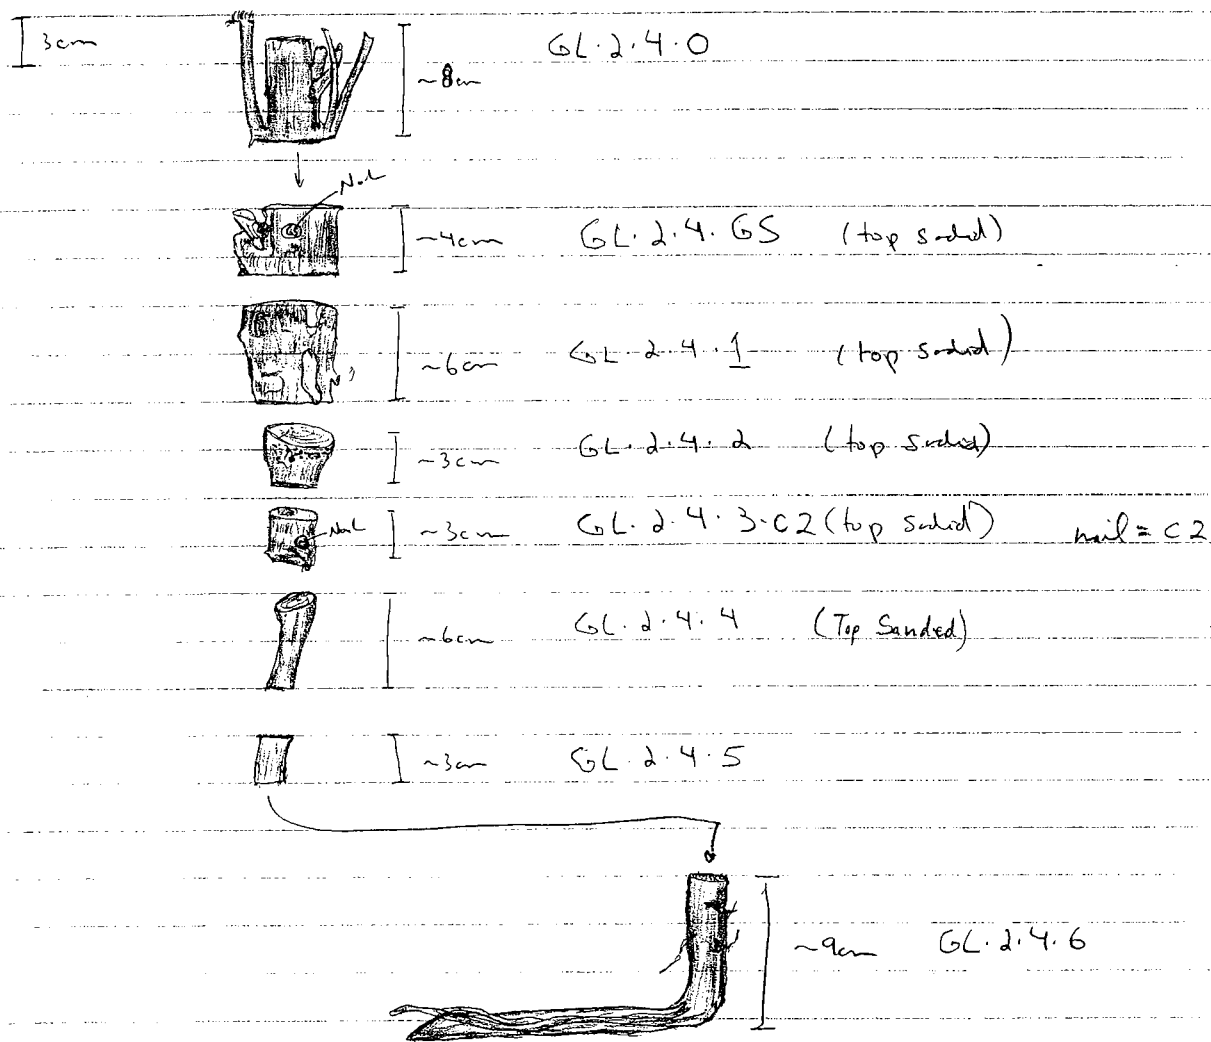 3cm
GL.2.4.0
~8cm
Nail
~4cm GL.2.4.GS (top sanded)
~6cm GL.2.4.1 (top sanded)
~3cm GL.2.4.2 (top sanded)
Nail ~3cm GL.2.4.3.C2 (top sanded) nail = C2
~6cm GL.2.4.4 (Top Sanded)
~3cm GL.2.4.5
~9cm GL.2.4.6